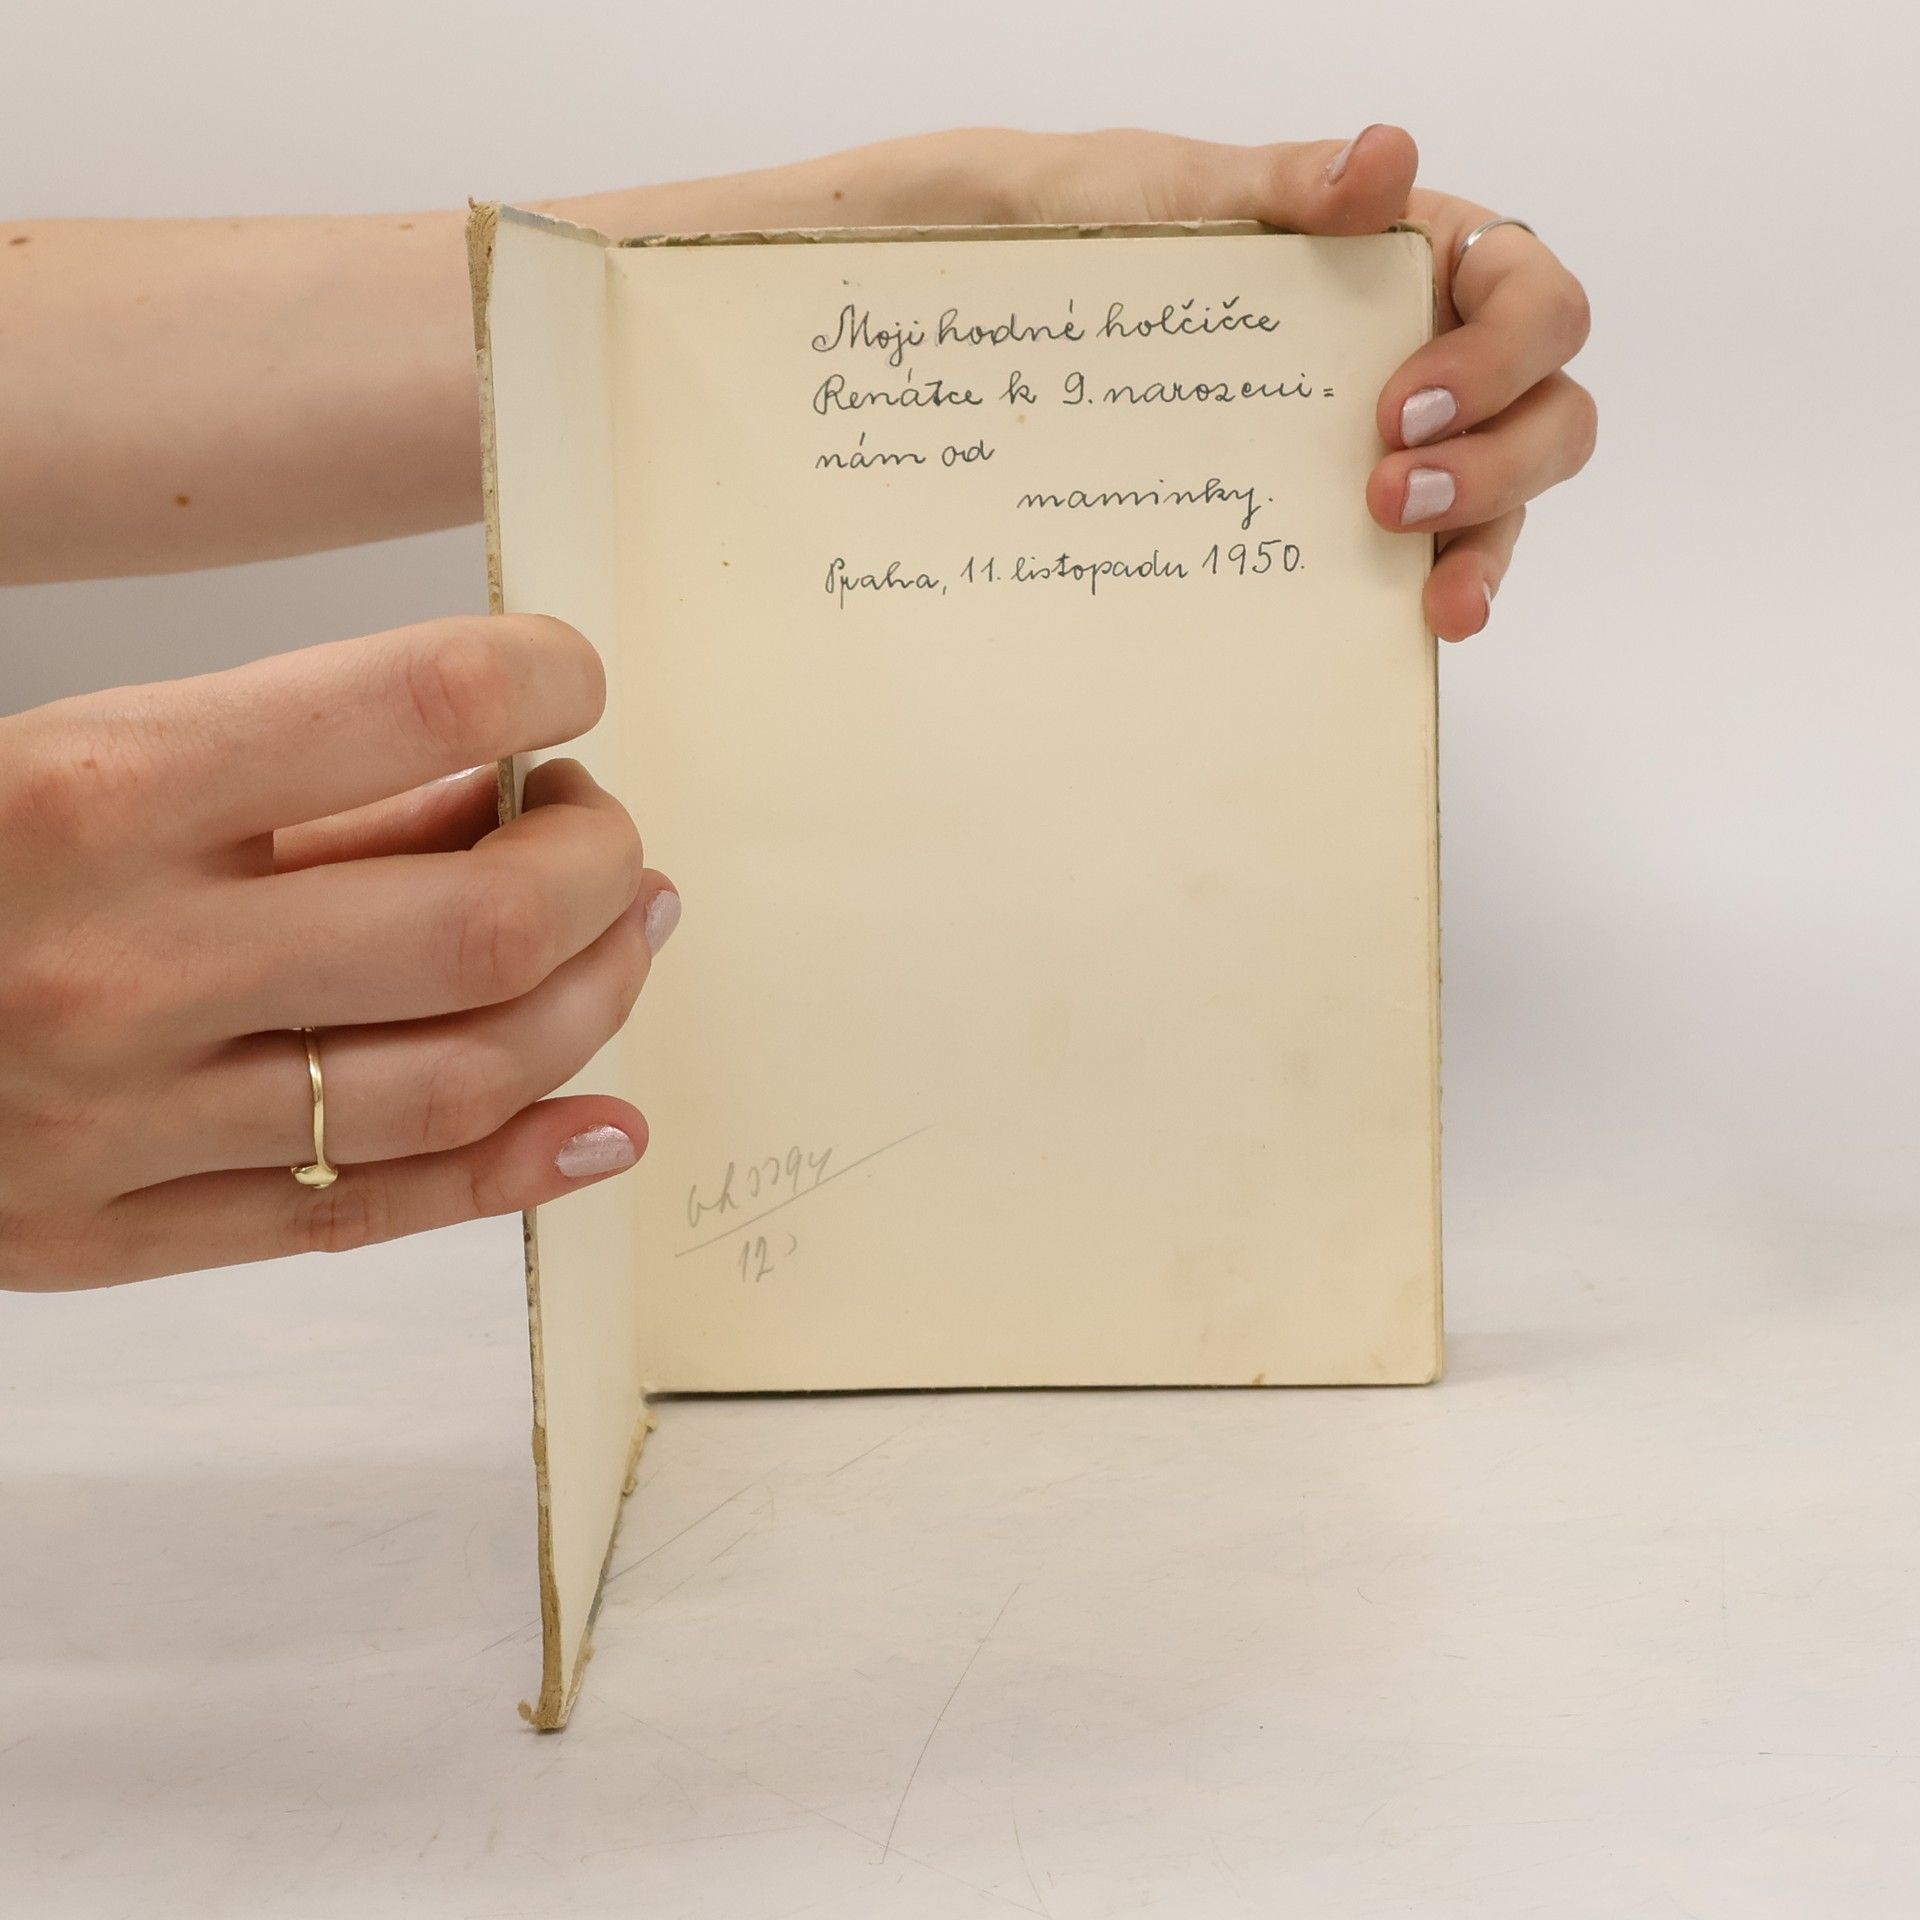 Moji hodné holčičce
Renátce k 9. narozeni=
nám od
maminky.
Praha, 11. listopadu 1950.